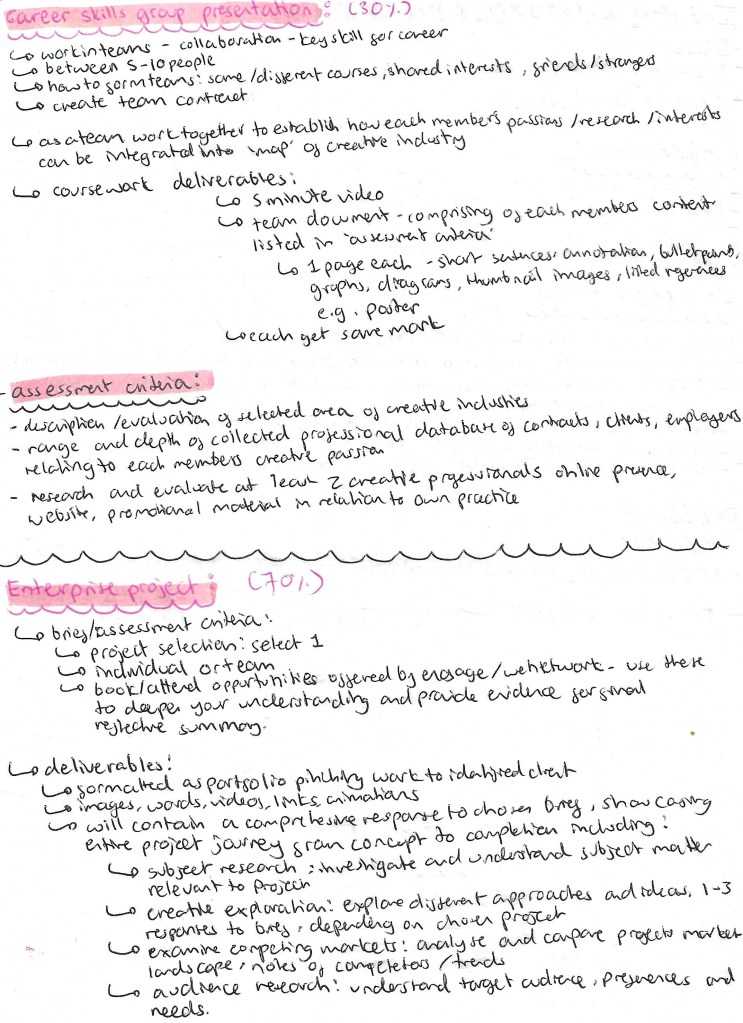 Career skills group presentation: (30%)
↳ work in teams - collaboration - key skill for career
↳ between 5-10 people
↳ how to form teams: same/different courses, shared interests, friends/strangers
↳ create team contract
↳ as a team work together to establish how each members passions/research/interests
can be integrated into 'map' of creative industry
↳ coursework deliverables:
↳ 5 minute video
↳ team document - comprising of each members content
listed in 'assessment criteria'
↳ 1 page each - short sentences, annotation, bulletpoints,
graphs, diagrams, thumbnail images, listed references
e.g. poster
↳ each get same mark
- assessment criteria:
- description/evaluation of selected area of creative industries
- range and depth of collected professional database of contacts, clients, employers
relating to each members creative passion
- research and evaluate at least 2 creative professionals online presence,
website, promotional material in relation to own practice
Enterprise project: (70%)
↳ brief/assessment criteria:
↳ project selection: select 1
↳ individual or team
↳ book/attend opportunities offered by engage/wenetwork - use these
to deepen your understanding and provide evidence for final
reflective summary.
↳ deliverables:
↳ formatted as portfolio pitching work to identified client
↳ images, words, videos, links, animations
↳ will contain a comprehesive response to chosen brief, showcasing
entire project journey from concept to completion including:
↳ subject research: investigate and understand subject matter
relevant to project
↳ creative exploration: explore different approaches and ideas, 1-3
responses to brief, depending on chosen project
↳ examine competing markets: analyse and compare projects market
landscape, notes of competetors/trends
↳ audience research: understand target audience, preferences and
needs.